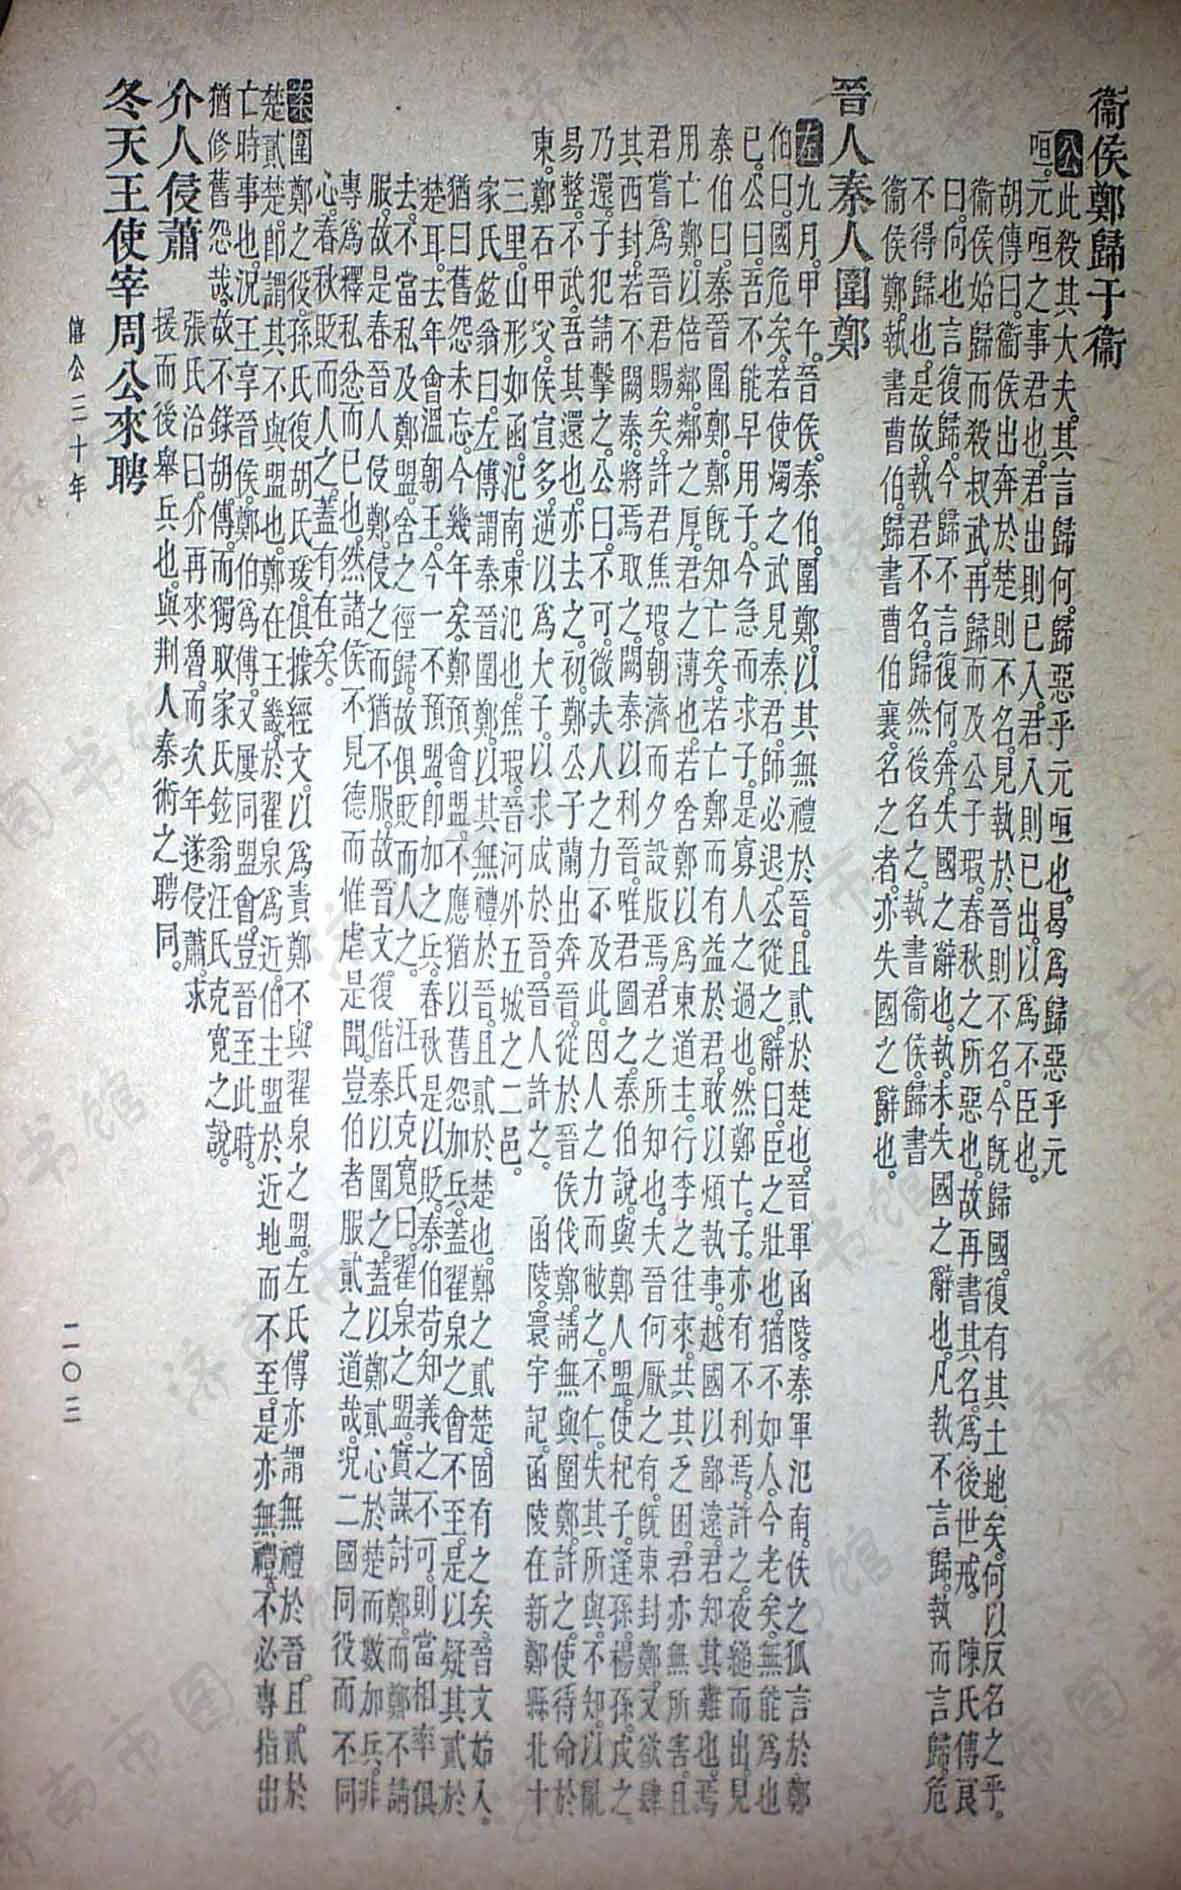 衞侯鄭歸于衞
公此殺其大夫。其言歸何。歸惡乎元咺也。曷爲歸惡乎元
咺。元咺之事君也。君出則已入。君入則已出。以爲不臣也。
胡傳曰。衞侯出奔於楚則不名。見執於晉則不名。今旣歸國。復有其土地矣。何以反名之乎。
衞侯始歸而殺叔武。再歸而及公子瑕。春秋之所惡也。故再書其名。爲後世戒。 陳氏傳良
曰。向也言復歸。今歸不言復何。奔失國之辭也。執未失國之辭也。凡執不言歸。執而言歸。危
不得歸也。是故執君不名。歸然後名之。執書衞侯。歸書
衞侯鄭。執書曹伯。歸書曹伯襄。名之者。亦失國之辭也。
晉人秦人圍鄭
左九月。甲午。晉侯。秦伯。圍鄭。以其無禮於晉。且貳於楚也。晉軍函陵。秦軍氾南。佚之狐言於鄭
伯曰。國危矣。若使燭之武見秦君。師必退。公從之。辭曰。臣之壯也。猶不如人。今老矣。無能爲也
已。公曰。吾不能早用子。今急而求子。是寡人之過也。然鄭亡。子亦有不利焉。許之。夜縋而出。見
秦伯曰。秦晉圍鄭。鄭旣知亡矣。若亡鄭而有益於君。敢以煩執事。越國以鄙遠。君知其難也。焉
用亡鄭以倍鄰。鄰之厚。君之薄也。若舍鄭以爲東道主。行李之往來。共其乏困。君亦無所害。且
君嘗爲晉君賜矣。許君焦瑕。朝濟而夕設版焉。君之所知也。夫晉何厭之有。旣東封鄭。又欲肆
其西封。若不闕秦。將焉取之。闕秦以利晉。唯君圖之。秦伯說。與鄭人盟。使杞子。逢孫。楊孫。戍之。
乃還。子犯請擊之。公曰。不可。微夫人之力不及此。因人之力而敝之。不仁。失其所與。不知。以亂
易整。不武。吾其還也。亦去之。初。鄭公子蘭出奔晉。從於晉侯伐鄭。請無與圍鄭。許之。使待命於
東。鄭石甲父。侯宣多。逆以爲大子。以求成於晉。晉人許之。 函陵。寰宇記。函陵在新鄭縣北十
三里。山形如函。氾南。東氾也。焦瑕。晉河外五城之二邑。
家氏鉉翁曰。左傳謂秦晉圍鄭。以其無禮於晉。且貳於楚也。鄭之貳楚。固有之矣。晉文始入。
猶曰舊怨未忘。今幾年矣。鄭預會盟。不應猶以舊怨加兵。蓋翟泉之會不至。是以疑其貳於
楚耳。去年會溫朝王。今一不預盟。卽加之兵。春秋是以貶。秦伯苟知義之不可。則當相率俱
去。不當私及鄭盟。舍之徑歸。故俱貶而人之。 汪氏克寬曰。翟泉之盟。實謀討鄭。而鄭不請
服。故是春晉人侵鄭。侵之而猶不服。故晉文復偕秦以圍之。蓋以鄭貳心於楚而數加兵。非
專爲釋私忿而已也。然諸侯不見德而惟虐是聞。豈伯者服貳之道哉。況二國同役而不同
心。春秋貶而人之。蓋有在矣。
案圍鄭之役。孫氏復胡氏瑗。俱據經文。以爲責鄭不與翟泉之盟。左氏傳亦謂無禮於晉。且貳於
楚。貳楚。卽謂其不與盟也。鄭在王畿。於翟泉爲近。伯主盟於近地而不至。是亦無禮。不必專指出
亡時事也。況王享晉侯。鄭伯爲傅。又屢同盟會。豈晉至此時。
猶修舊怨哉。故不錄胡傳。而獨取家氏鉉翁汪氏克寬之說。
介人侵蕭
張氏洽曰。介再來魯。而次年遂侵蕭。求
援而後舉兵也。與荆人秦術之聘同。
冬天王使宰周公來聘
僖公三十年
二〇三